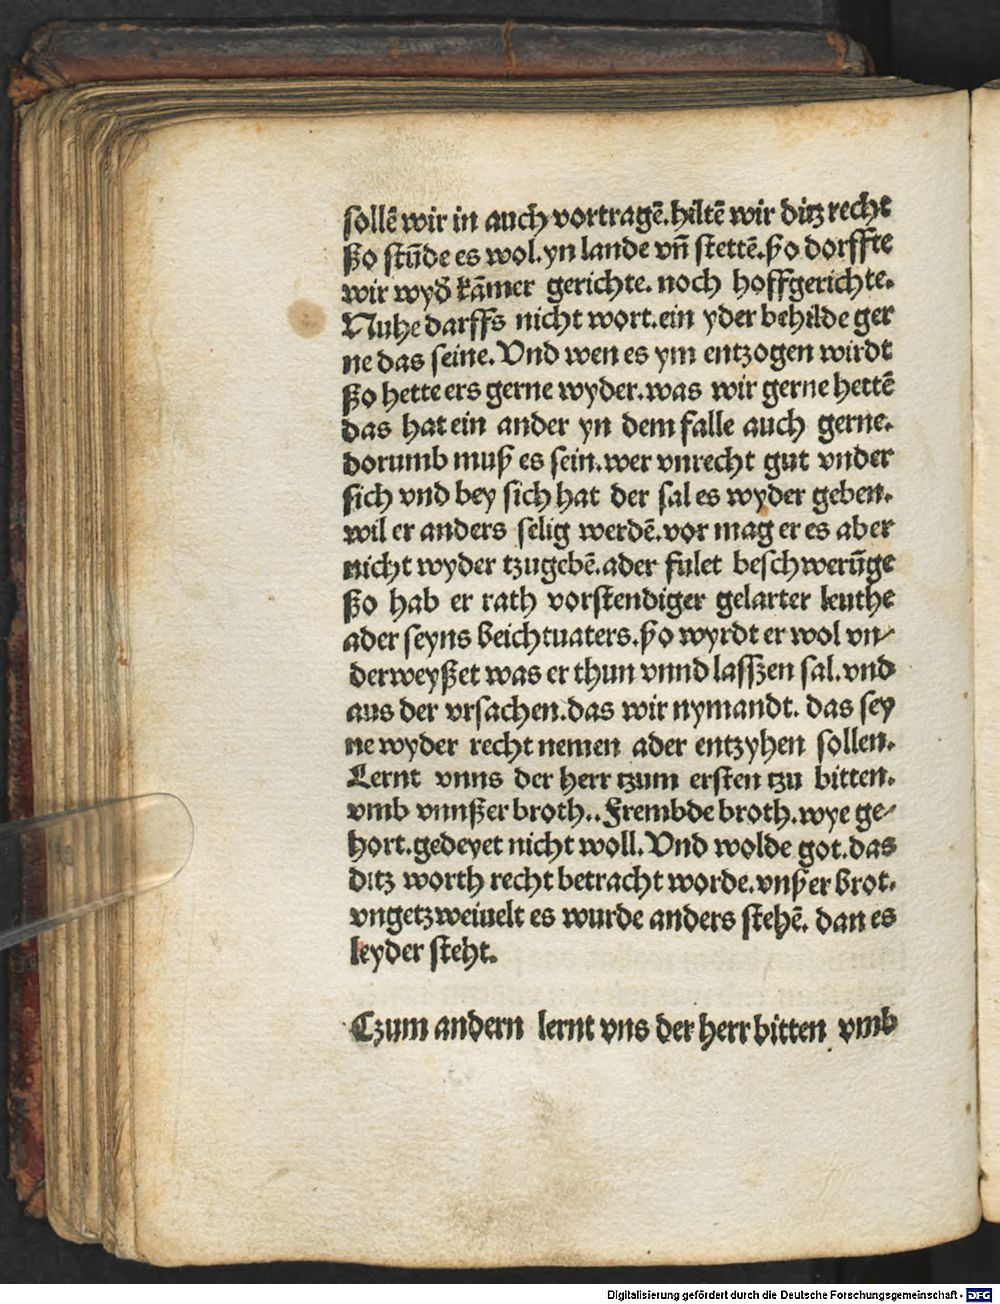 sollē wir in auch vortragē. hiltē wir ditz recht
ßo stūde es wol. yn lande vn̄ stettē. ßo dorffte
wir wyd̄ kāmer gerichte. noch hoffgerichte.
Nuhe darffs nicht wort. ein yder behilde ger
ne das seine. Vnd wen es ym entzogen wirdt
ßo hette ers gerne wyder. was wir gerne hettē
das hat ein ander yn dem falle auch gerne.
dorumb muß es sein. wer vnrecht gut vnder
sich vnd bey sich hat der sal es wyder geben.
wil er anders selig werdē. vor mag er es aber
nicht wyder tzugebē. ader fulet beschwerūge
ßo hab er rath vorstendiger gelarter leuthe
ader seyns beichtuaters. ßo wyrdt er wol vn⸗
derweyßet was er thun vnnd lasszen sal. vnd
aus der vrsachen. das wir nymandt. das sey
ne wyder recht nemen ader entzyhen sollen.
Lernt vnns der herr tzum ersten tzu bitten.
vmb vnnßer broth.. Frembde broth. wye ge⸗
hort. gedeyet nicht woll. Vnd wolde got. das
ditz worth recht betracht worde. vnßer brot.
vngetzweiuelt es wurde anders stehē. dan es
leyder steht.
Czum andern lernt vns der herr bitten vmb
Digitalisierung gefördert durch die Deutsche Forschungsgemeinschaft - DFG